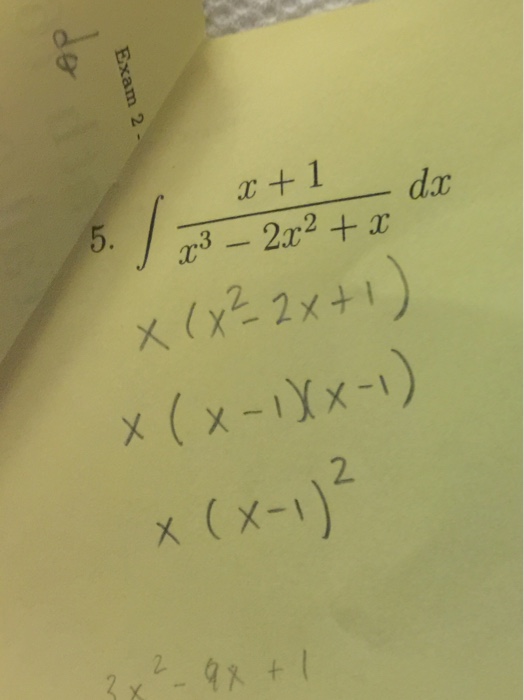 dθ
Exam 2 -
5. ∫ (x + 1)/(x³ − 2x² + x) dx
x (x² - 2x + 1)
x (x - 1)(x - 1)
x (x - 1)²
3x² - 9x + 1